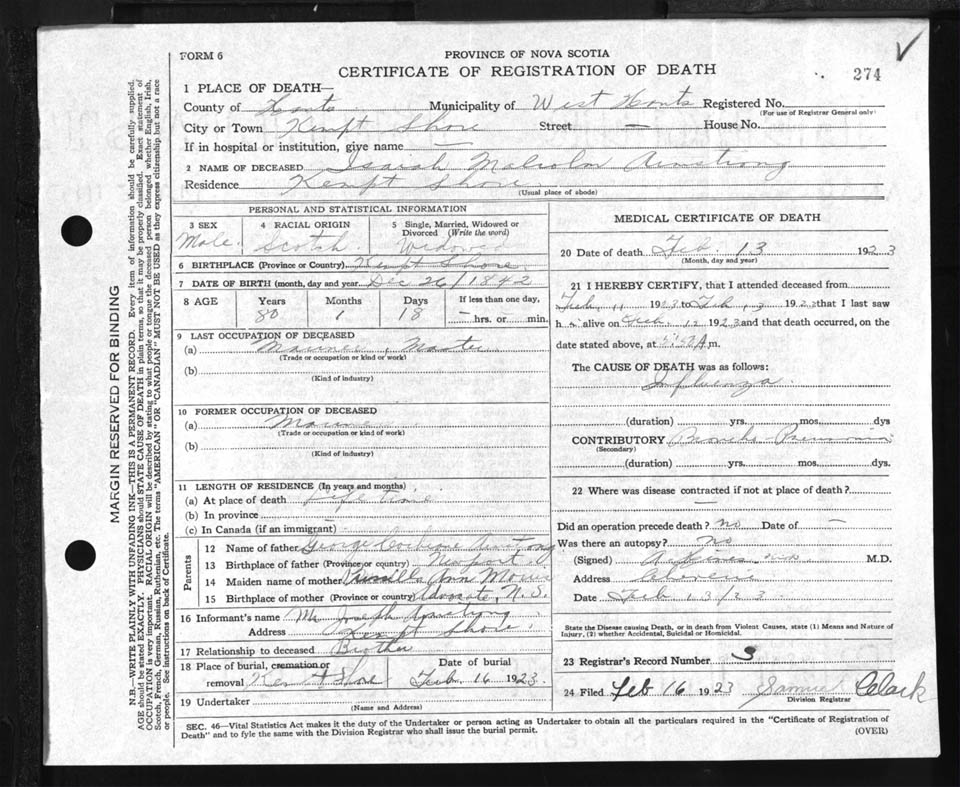 FORM 6
PROVINCE OF NOVA SCOTIA
CERTIFICATE OF REGISTRATION OF DEATH
274
1 PLACE OF DEATH—
County of Hants Municipality of West Hants Registered No.
(For use of Registrar General only)
City or Town Kempt Shore Street — House No.
If in hospital or institution, give name —
2 NAME OF DECEASED Isaiah Malcolm Armstrong
Residence Kempt Shore
(Usual place of abode)
PERSONAL AND STATISTICAL INFORMATION
3 SEX Male
4 RACIAL ORIGIN Scotch
5 Single, Married, Widowed or Divorced (Write the word) Widower
6 BIRTHPLACE (Province or Country) Kempt Shore
7 DATE OF BIRTH (month, day and year) Dec 26/1842
8 AGE Years Months Days If less than one day,
80 1 18 — hrs. or min.
9 LAST OCCUPATION OF DECEASED
(a) Mariner, Master
(Trade or occupation or kind or work)
(b)
(Kind of industry)
10 FORMER OCCUPATION OF DECEASED
(a)
(Trade or occupation or kind of work)
(b)
(Kind of industry)
11 LENGTH OF RESIDENCE (In years and months)
(a) At place of death life time
(b) In province —
(c) In Canada (if an immigrant)
Parents
12 Name of father George Cochrane Armstrong
13 Birthplace of father (Province or Country) Newport
14 Maiden name of mother Ann
15 Birthplace of mother (Province or country) Advocate, N. S.
16 Informant's name Mr Joseph Armstrong
Address Kempt Shore
17 Relationship to deceased Brother
18 Place of burial, cremation or removal Kempt Shore Date of burial Feb 16 1923
19 Undertaker
(Name and Address)
MEDICAL CERTIFICATE OF DEATH
20 Date of death Feb. 13 1923
(Month, day and year)
21 I HEREBY CERTIFY, that I attended deceased from
Feb 11 1923 to Feb 13 1923 that I last saw
h alive on Feb 12 1923 and that death occurred, on the
date stated above, at A m.
The CAUSE OF DEATH was as follows:
Influenza
(duration) yrs. mos. dys
CONTRIBUTORY Broncho-Pneumonia
(Secondary)
(duration) yrs. mos. dys.
22 Where was disease contracted if not at place of death?
—
Did an operation precede death? no Date of —
Was there an autopsy? no
(Signed) M.D.
Address
Date Feb 13/23
State the Disease causing Death, or in death from Violent Causes, state (1) Means and Nature of
Injury, (2) whether Accidental, Suicidal or Homicidal.
23 Registrar's Record Number
24 Filed Feb 16 1923 Samuel Clark
Division Registrar
SEC. 46—Vital Statistics Act makes it the duty of the Undertaker or person acting as Undertaker to obtain all the particulars required in the "Certificate of Registration of
Death" and to fyle the same with the Division Registrar who shall issue the burial permit.
(OVER)
MARGIN RESERVED FOR BINDING
N.B.—WRITE PLAINLY WITH UNFADING INK—THIS IS A PERMANENT RECORD. Every item of information should be carefully supplied.
AGE should be stated EXACTLY. PHYSICIANS should STATE CAUSE OF DEATH in plain terms, so that it may be properly classified. Exact statement of
OCCUPATION is very important. RACIAL ORIGIN will be described by stating to what people or tongue the deceased person belonged whether English, Irish,
Scotch, French, German, Russian, Ruthenian, etc. The terms "AMERICAN" OR "CANADIAN" MUST NOT BE USED as they express citizenship but not a race
or people. See instructions on back of Certificate.